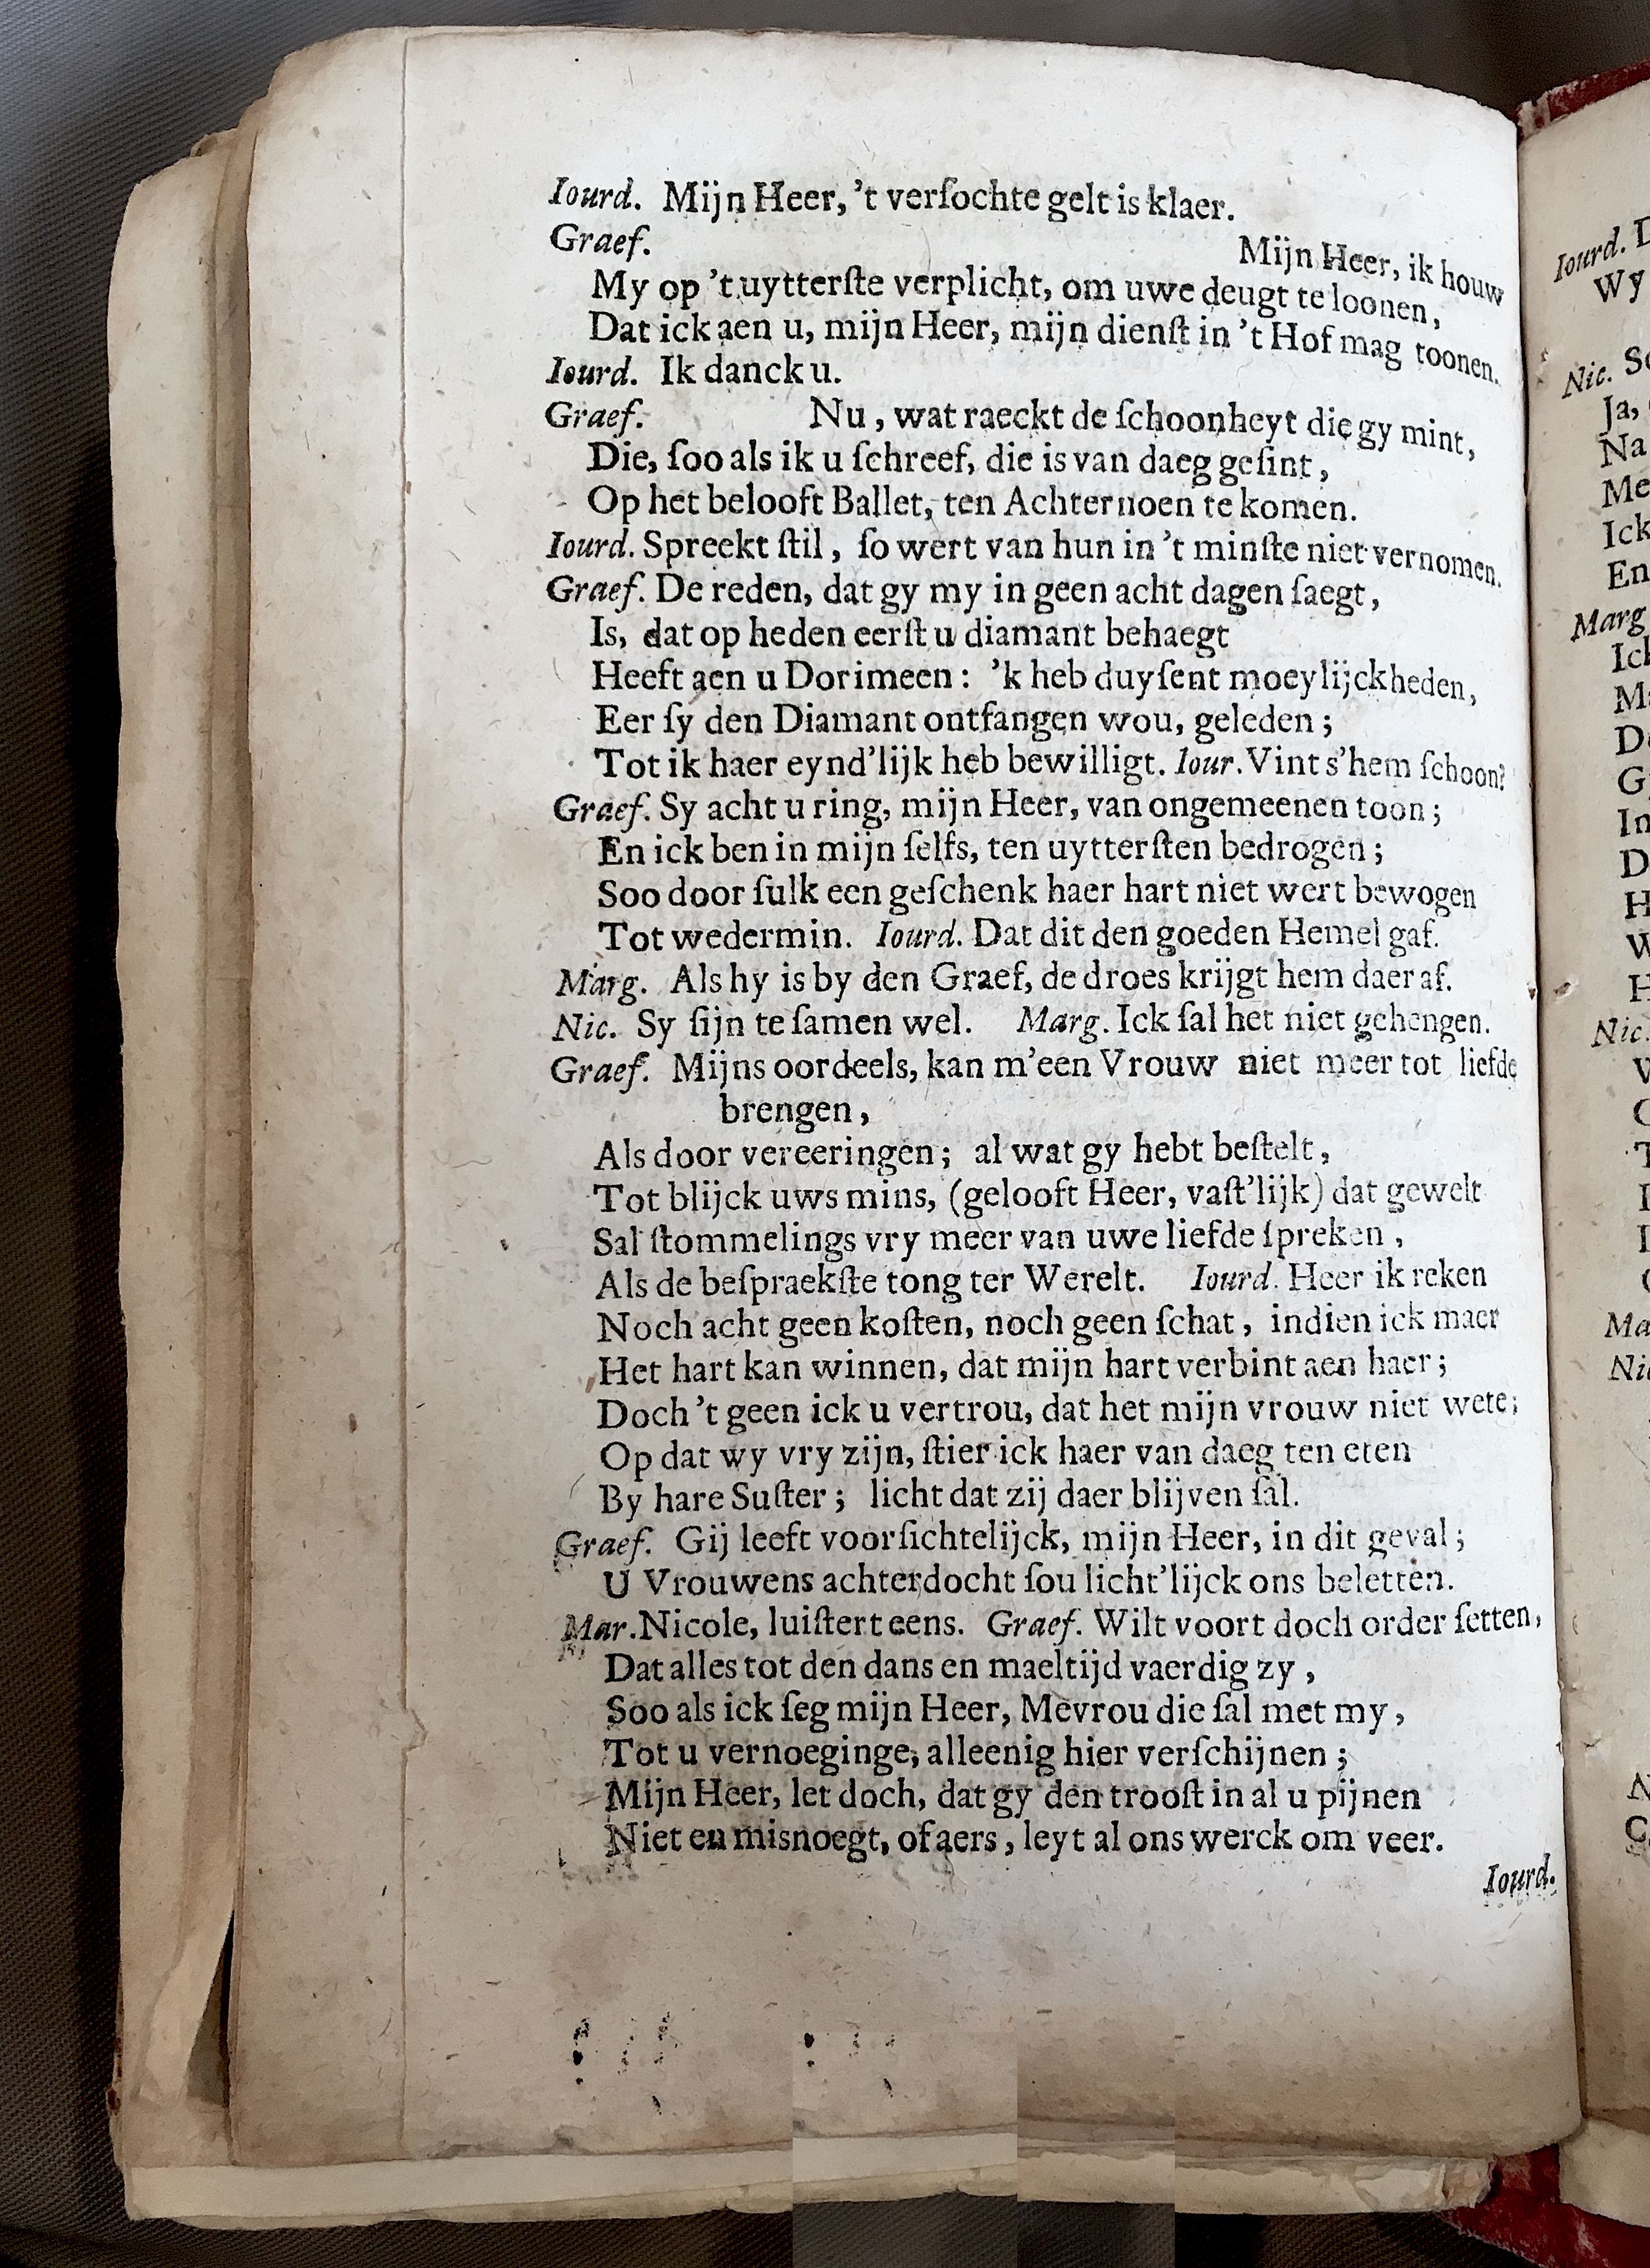 Iourd. Mijn Heer, 't verſochte gelt is klaer.
Graef. Mijn Heer, ik houw
My op 't uytterſte verplicht, om uwe deugt te loonen,
Dat ick aen u, mijn Heer, mijn dienſt in 't Hof mag toonen.
Iourd. Ik danck u.
Graef. Nu, wat raeckt de ſchoonheyt die gy mint,
Die, ſoo als ik u ſchreef, die is van daeg geſint,
Op het belooft Ballet, ten Achternoen te komen.
Iourd. Spreekt ſtil, ſo wert van hun in 't minſte niet vernomen.
Graef. De reden, dat gy my in geen acht dagen ſaegt,
Is, dat op heden eerſt u diamant behaegt
Heeft aen u Dorimeen: 'k heb duyſent moeylijckheden,
Eer ſy den Diamant ontfangen wou, geleden;
Tot ik haer eynd'lijk heb bewilligt. Iour. Vint s'hem ſchoon?
Graef. Sy acht u ring, mijn Heer, van ongemeenen toon;
En ick ben in mijn ſelfs, ten uytterſten bedrogen;
Soo door ſulk een geſchenk haer hart niet wert bewogen
Tot wedermin. Iourd. Dat dit den goeden Hemel gaf.
Marg. Als hy is by den Graef, de droes krijgt hem daer af.
Nic. Sy ſijn te ſamen wel. Marg. Ick ſal het niet gehengen.
Graef. Mijns oordeels, kan m'een Vrouw niet meer tot liefde
brengen,
Als door vereeringen; al wat gy hebt beſtelt,
Tot blijck uws mins, (gelooft Heer, vaſt'lijk) dat gewelt
Sal ſtommelings vry meer van uwe liefde ſpreken,
Als de beſpraekſte tong ter Werelt. Iourd. Heer ik reken
Noch acht geen koſten, noch geen ſchat, indien ick maer
Het hart kan winnen, dat mijn hart verbint aen haer;
Doch 't geen ick u vertrou, dat het mijn vrouw niet wete;
Op dat wy vry zijn, ſtier ick haer van daeg ten eten
By hare Suſter; licht dat zij daer blijven ſal.
Graef. Gij leeft voorſichtelijck, mijn Heer, in dit geval;
U Vrouwens achterdocht ſou licht'lijck ons beletten.
Mar. Nicole, luiſtert eens. Graef. Wilt voort doch order ſetten,
Dat alles tot den dans en maeltijd vaerdig zy,
Soo als ick ſeg mijn Heer, Mevrou die ſal met my,
Tot u vernoeginge, alleenig hier verſchijnen;
Mijn Heer, let doch, dat gy den trooſt in al u pijnen
Niet en misnoegt, of aers, leyt al ons werck om veer.
Iourd.
Iourd. D
Wy
Nic. So
Ja,
Na
Me
Ick
En
Marg
Ick
Ma
Do
G
In
D
H
W
H
Nic.
Ma
Nic